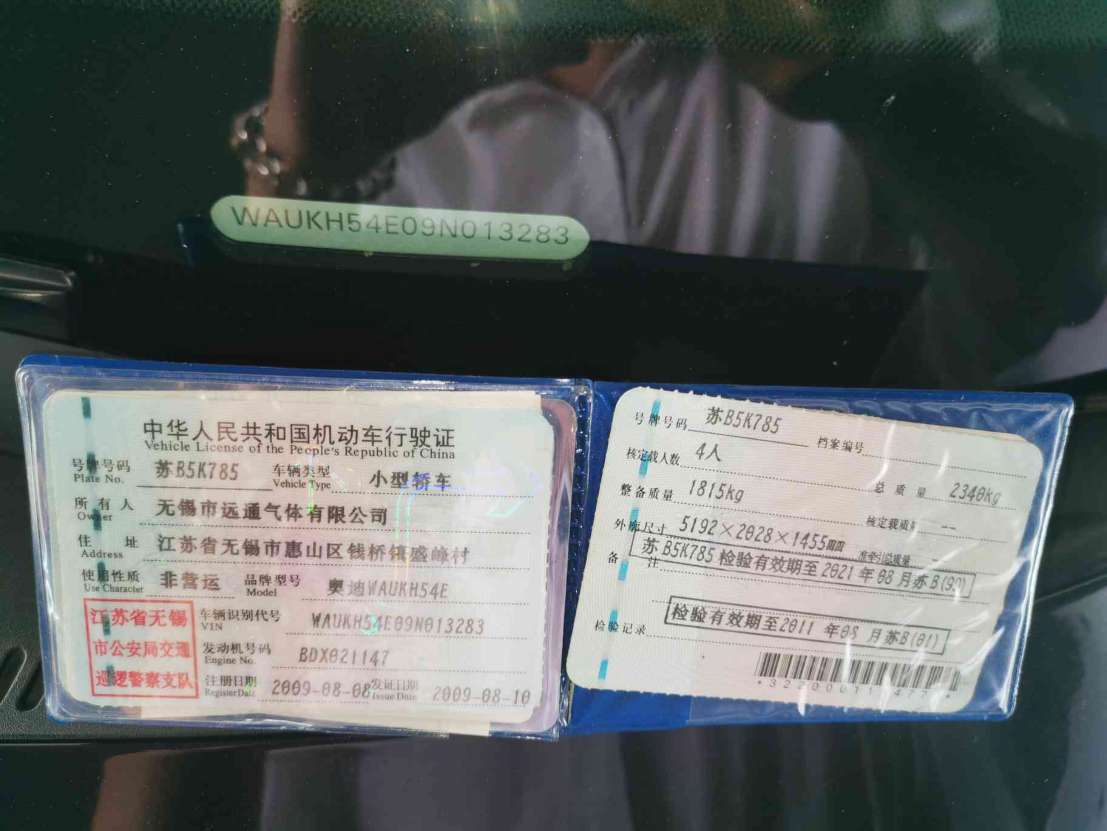 WAUKH54E09N013283
中华人民共和国机动车行驶证
Vehicle License of the People's Republic of China
号牌号码 苏B5K785 车辆类型 小型轿车
Plate No. Vehicle Type
所有人 无锡市远通气体有限公司
Owner
住址 江苏省无锡市惠山区钱桥镇盛峰村
Address
使用性质 非营运 品牌型号 奥迪WAUKH54E
Use Character Model
江苏省无锡
市公安局交通
巡逻警察支队
车辆识别代号 WAUKH54E09N013283
VIN
发动机号码 BDX021147
Engine No.
注册日期 2009-08-08 发证日期 2009-08-10
Register Date Issue Date
号牌号码 苏B5K785 档案编号
核定载人数 4人 总质量 2340kg
整备质量 1815kg 核定载质量 --
外廓尺寸 5192×2028×1455mm 准牵引总质量
备注 苏B5K785 检验有效期至2021年08月苏B(99)
检验有效期至2011年08月苏B(01)
检验记录